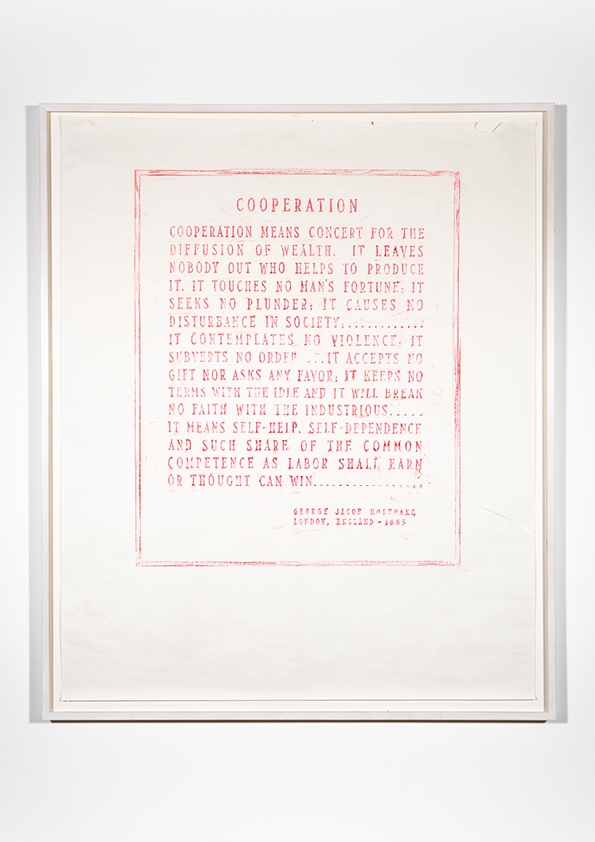 COOPERATION
COOPERATION MEANS CONCERT FOR THE
DIFFUSION OF WEALTH. IT LEAVES
NOBODY OUT WHO HELPS TO PRODUCE
IT. IT TOUCHES NO MAN'S FORTUNE; IT
SEEKS NO PLUNDER; IT CAUSES NO
DISTURBANCE IN SOCIETY............
IT CONTEMPLATES NO VIOLENCE; IT
SUBVERTS NO ORDER ...IT ACCEPTS NO
GIFT NOR ASKS ANY FAVOR; IT KEEPS NO
TERMS WITH THE IDLE AND IT WILL BREAK
NO FAITH WITH THE INDUSTRIOUS.....
IT MEANS SELF-HELP, SELF-DEPENDENCE
AND SUCH SHARE OF THE COMMON
COMPETENCE AS LABOR SHALL EARN
OR THOUGHT CAN WIN................
GEORGE JACOB HOLYOAKE
LONDON, ENGLAND - 1885